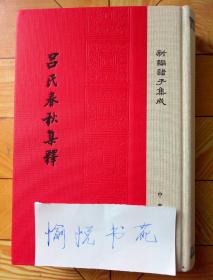 新編諸子集成
吕氏春秋集釋
中
愉悦书苑